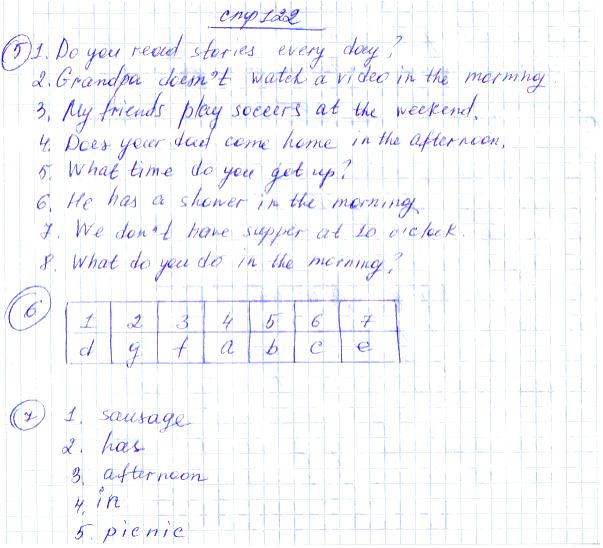 стр 122
5 1. Do you read stories every day?
2. Grandpa doesn't watch a video in the morning.
3. My friends play soccers at the weekend.
4. Does your dad come home in the afternoon.
5. What time do you get up?
6. He has a shower in the morning
7. We don't have supper at 10 o'clock.
8. What do you do in the morning?
6
1 2 3 4 5 6 7
d g f a b c e
7 1. sausage
2. has
3. afternoon
4. in
5. picnic